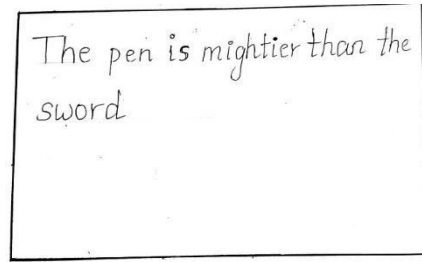 The pen is mightier than the
sword